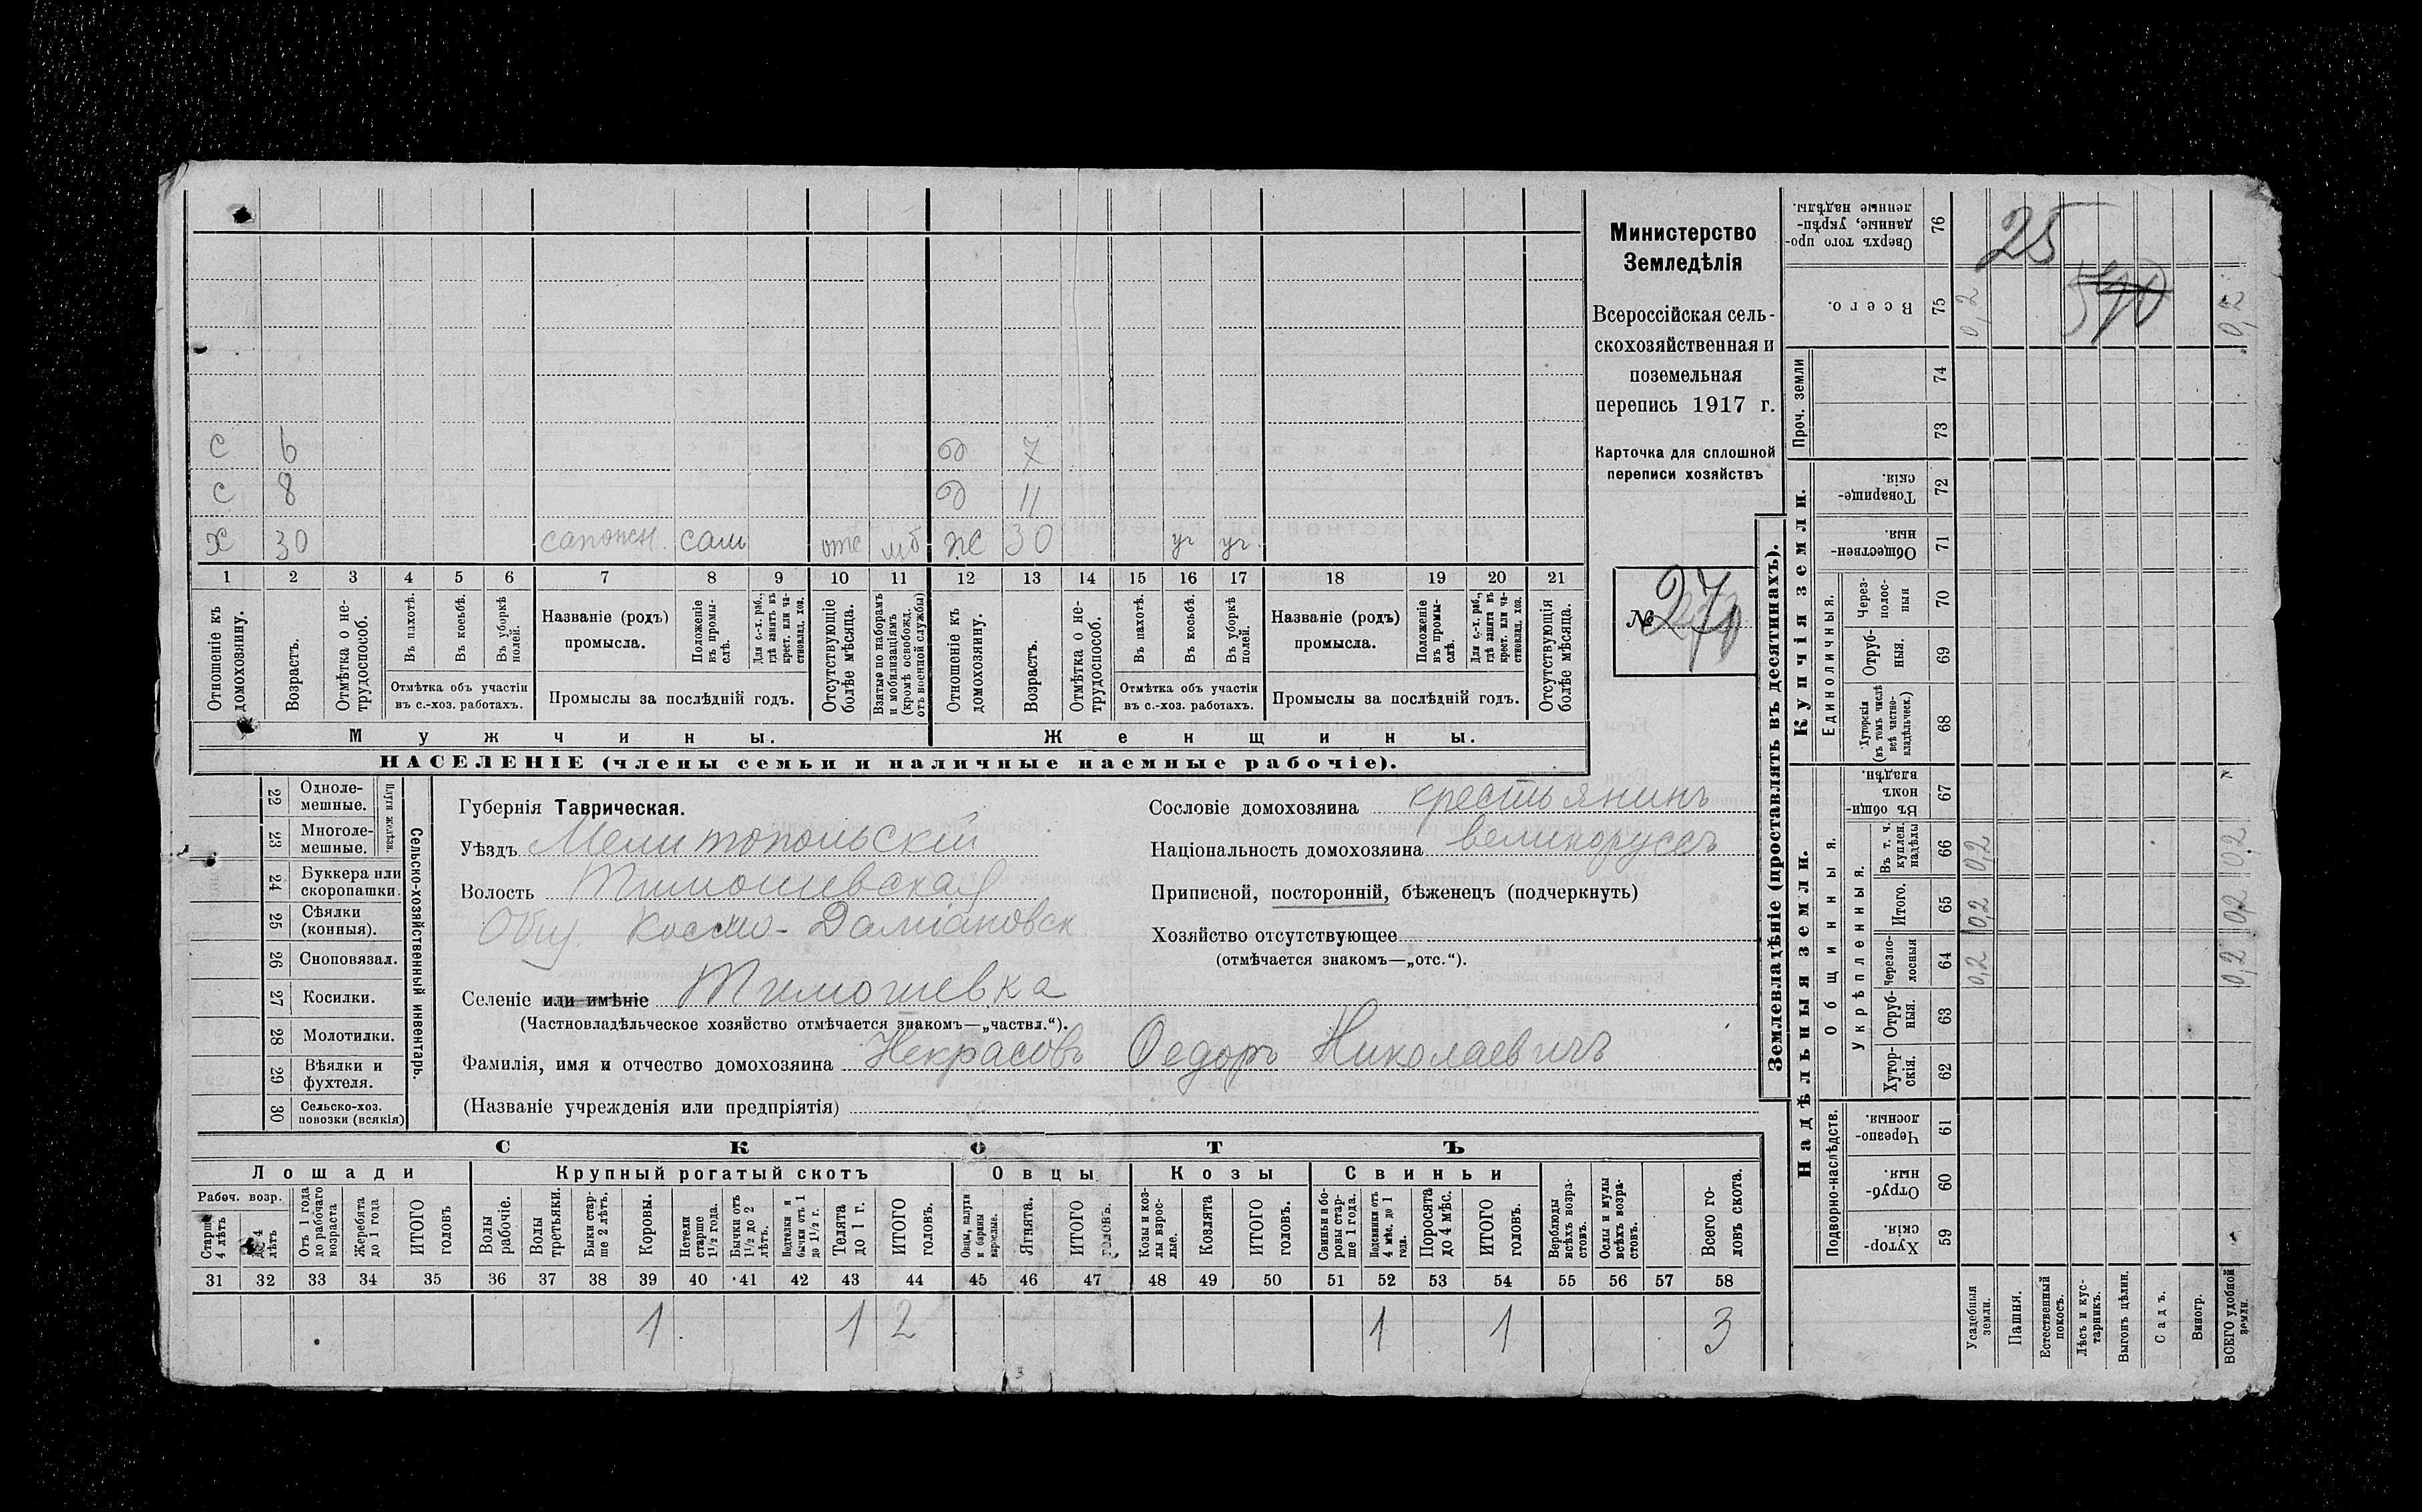 с 6 д 7
с 8 д 11
х 30 сапожн. сам отс мб ж 30 уч уч.
1 2 3 4 5 6 7 8 9 10 11 12 13 14 15 16 17 18 19 20 21
Отношеніе къ домохозяину.
Возрастъ.
Отмѣтка о не-трудоспособ.
Въ пахотѣ.
Въ косьбѣ.
Въ уборкѣ полей.
Отмѣтка объ участіи
въ с.-хоз. работахъ.
Названіе (родъ)
промысла.
Положеніе въ промы-слѣ.
Для с.-х. раб., гдѣ занятъ въ крест. или ча-стновлад. хоз.
Промыслы за послѣдній годъ.
Отсутствующіе болѣе мѣсяца.
Взятые по наборамъ и мобилизаціямъ (кромѣ освобожд. отъ военной службы)
Отношеніе къ домохозяину.
Возрастъ.
Отмѣтка о не-трудоспособ.
Въ пахотѣ.
Въ косьбѣ.
Въ уборкѣ полей.
Отмѣтка объ участіи
въ с.-хоз. работахъ.
Названіе (родъ)
промысла.
Положеніе въ промы-слѣ.
Для с.-х. раб., гдѣ занята въ крест. или ча-стновлад. хоз.
Промыслы за послѣдній годъ.
Отсутствующія болѣе мѣсяца.
Мужчины. Женщины.
НАСЕЛЕНІЕ (члены семьи и наличные наемные рабочіе).
Министерство
Земледѣлія
Всероссійская сель-
скохозяйственная и
поземельная
перепись 1917 г.
Карточка для сплошной
переписи хозяйствъ
№ 27
Сельско-хозяйственный инвентарь.
Плуги желѣзн.
22 Одноле-мешные.
23 Многоле-мешные.
24 Буккера или скоропашки.
25 Сѣялки (конныя).
26 Сноповязал.
27 Косилки.
28 Молотилки.
29 Вѣялки и фухтеля.
30 Сельско-хоз. повозки (всякія)
Губернія Таврическая.
Уѣздъ Мелитопольскій
Волость Тимошевская
Общ. Космо-Даміановск
Селеніе или имѣніе Тимошевка
(Частновладѣльческое хозяйство отмѣчается знакомъ—„частвл.“).
Фамилія, имя и отчество домохозяина Некрасовъ Ѳедоръ Николаевичъ
(Названіе учрежденія или предпріятія)
Сословіе домохозяина крестьянинъ
Національность домохозяина великорусъ
Приписной, посторонній, бѣженецъ (подчеркнуть)
Хозяйство отсутствующее
(отмѣчается знакомъ—„отс.“).
СКОТЪ
Лошади Крупный рогатый скотъ Овцы Козы Свиньи
Рабоч. возр.
Старше 4 лѣтъ
До 4 лѣтъ
Отъ 1 года до рабочаго возраста
Жеребята до 1 года
ИТОГО головъ
Волы рабочіе.
Волы третьяки.
Быки стар-ше 2 лѣтъ.
Коровы.
Нетели старше 1½ года.
Бычки отъ 1½ до 2 лѣтъ.
Подтелки и бычки отъ 1 до 1½ г.
Телята до 1 г.
ИТОГО головъ.
Овцы, валухи и бараны взрослые.
Ягнята.
ИТОГО головъ.
Козы и коз-лы взрос-лые.
Козлята
ИТОГО головъ.
Свиньи и бо-ровы стар-ше 1 года.
Подсвинки отъ 4 мѣс. до 1 года.
Поросята до 4 мѣс.
ИТОГО головъ.
Верблюды всѣхъ возра-стовъ.
Ослы и мулы всѣхъ возра-стовъ.
Всего го-ловъ скота.
31 32 33 34 35 36 37 38 39 40 41 42 43 44 45 46 47 48 49 50 51 52 53 54 55 56 57 58
1 1 2 1 1 3
Землевладѣніе (проставлять въ десятинахъ).
Надѣльныя земли.
Купчія земли.
Проч. земли
Подворно-наслѣдств.
Общинныя.
Укрѣпленныя.
Единоличныя.
Сверхъ того про-данные, укрѣп-ленные надѣлы. 76
Всего. 75 0,2 0,2
74
73
Товарище-скія. 72
Обществен-ныя. 71
Через-полос-ныя 70
Отруб-ныя. 69
Хуторскія (въ томъ числѣ всѣ частно-владѣльческ.) 68
Въ общин-номъ владѣн. 67
Въ т. ч. куплен. надѣлы 66 0,2 0,2
Итого. 65 0,2 0,2
Черезпо-лосныя 64 0,2 0,2
Отруб-ныя. 63
Хутор-скія. 62
Черезпо-лосныя. 61
Отруб-ныя. 60
Хутор-скія. 59
Усадебныя земли.
Пашня.
Естественный покосъ.
Лѣсъ и кус-тарникъ.
Выгонъ цѣлин.
Садъ.
Виногр.
ВСЕГО удобной земли.
25